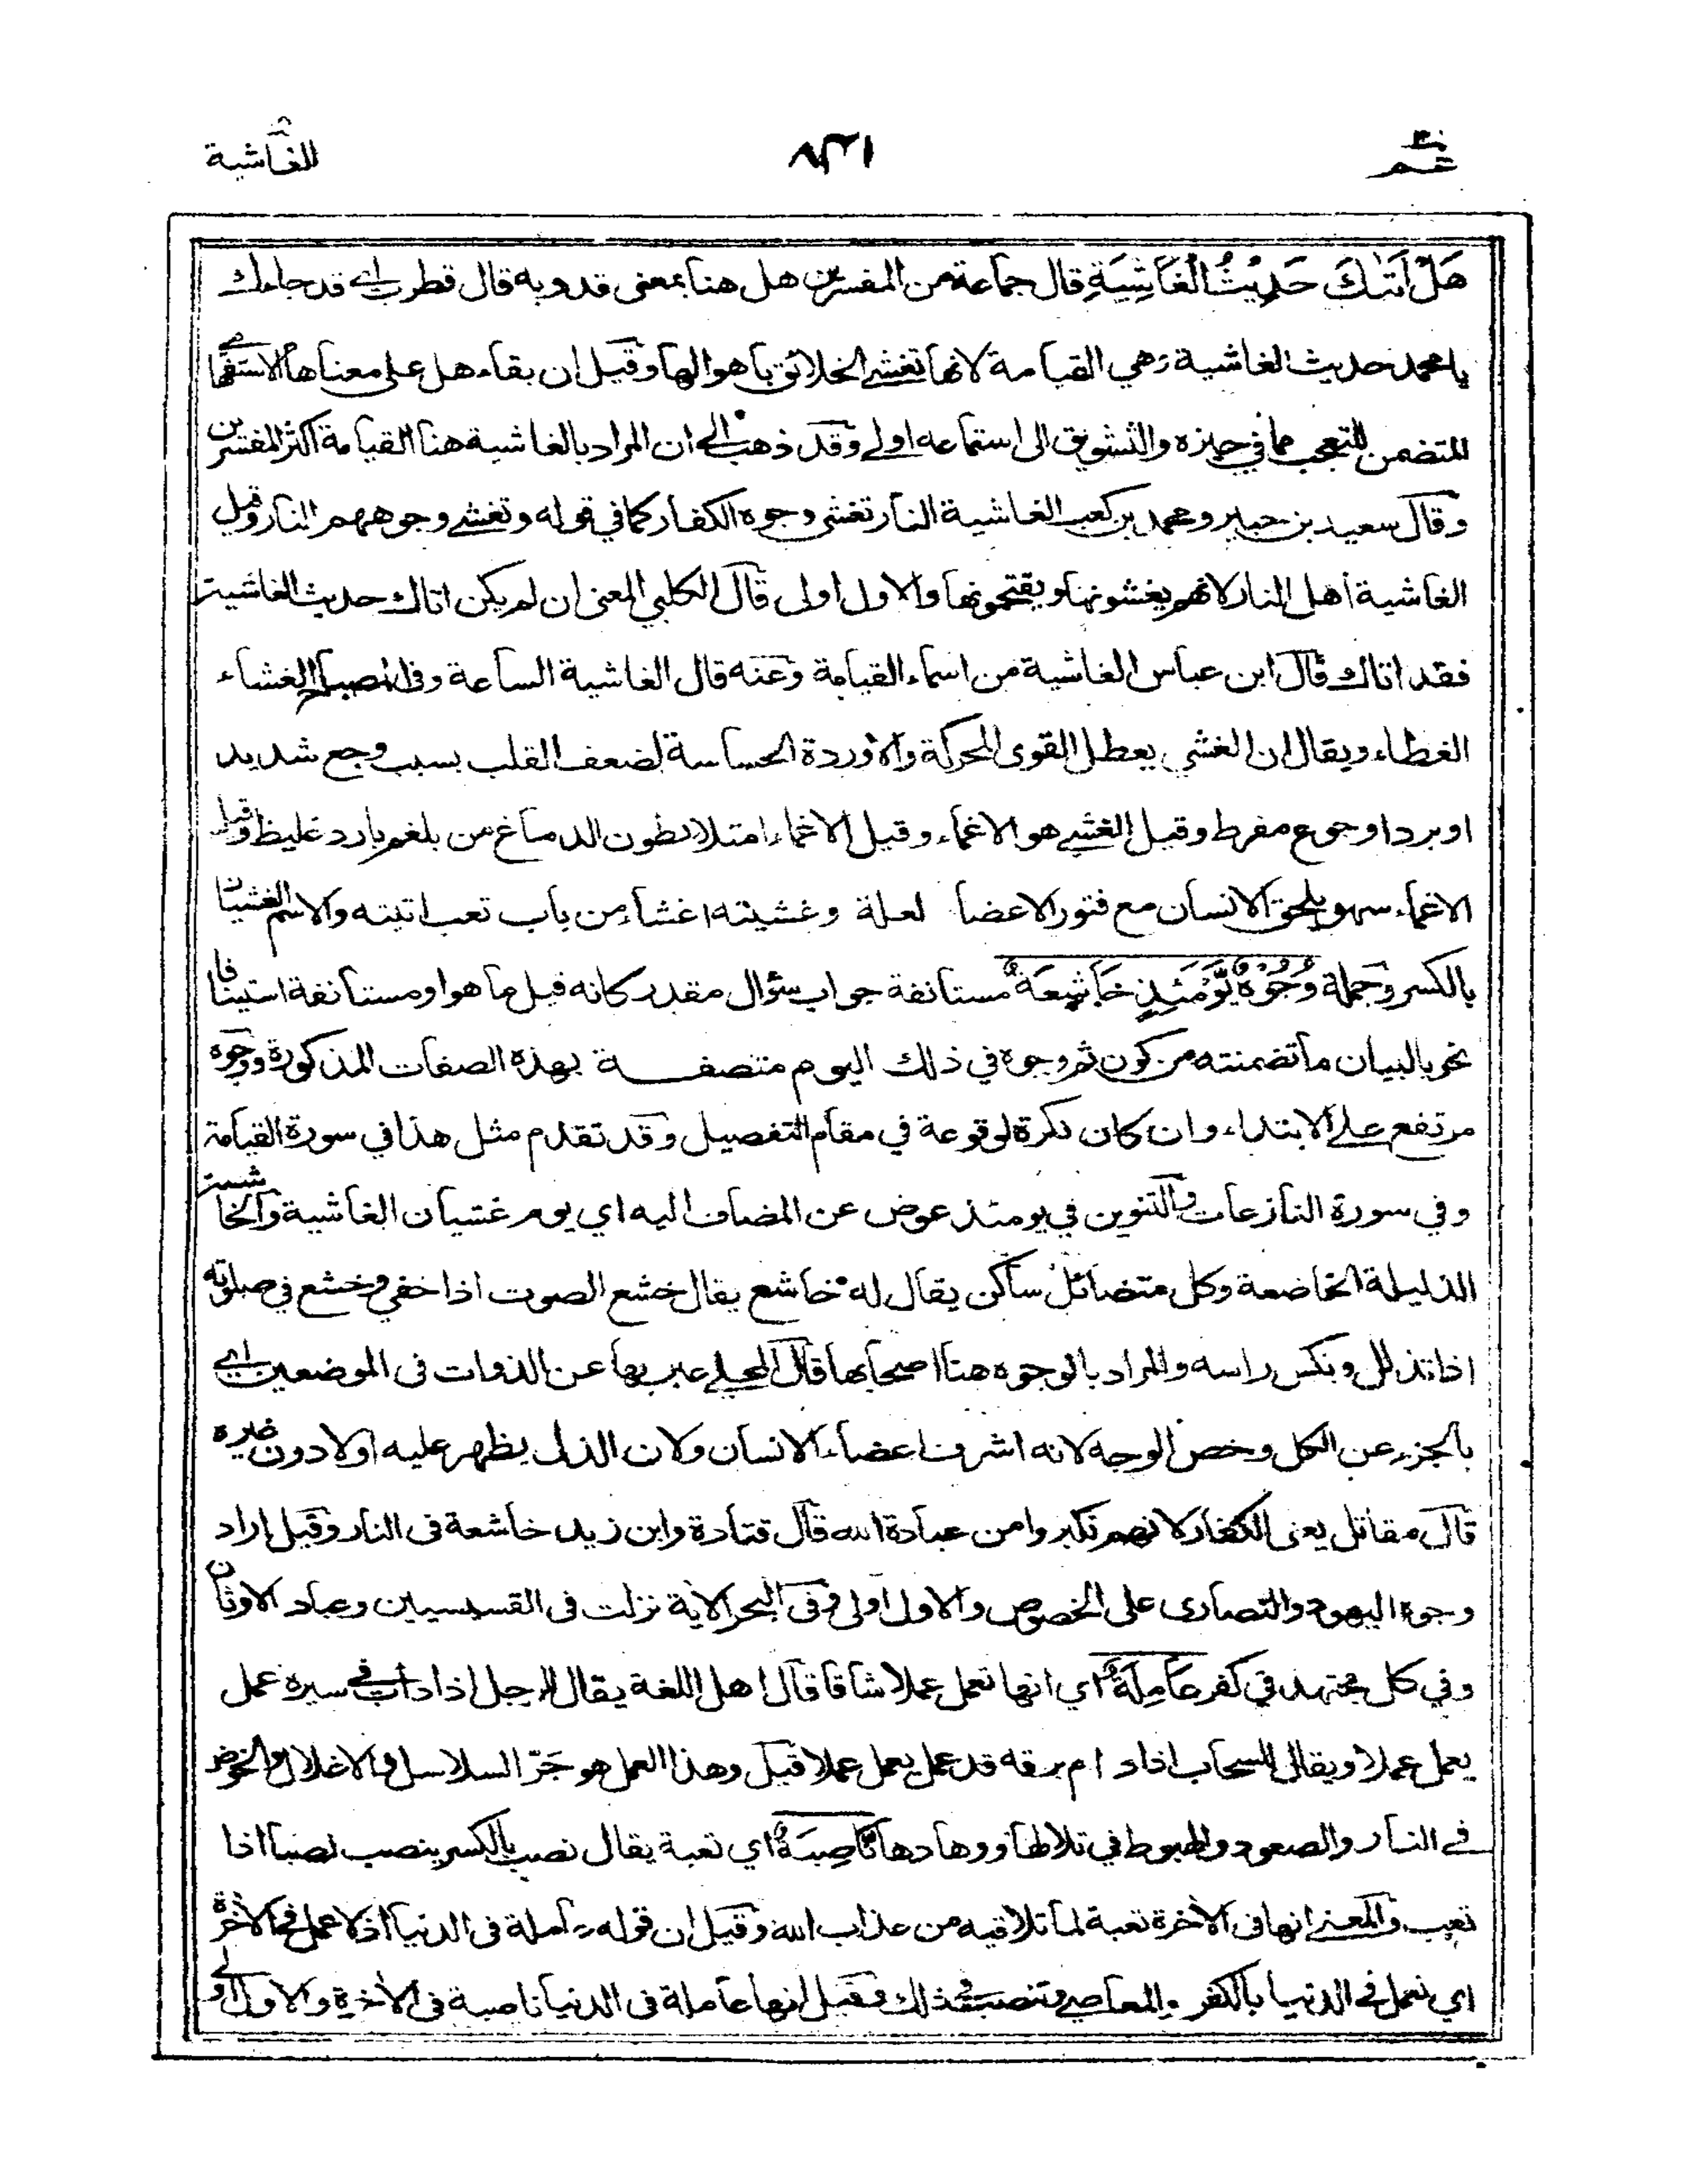 عم
٨٣١
الغاشية
هَلْ اَتٰىكَ حَدِيْثُ الْغَاشِيَةِ قال جماعة من المفسرين هل هنا بمعنى قد وبه قال قطرب اي قد جاءك
يا محمد حديث الغاشية وهي القيامة لانها تغشى الخلائق باهوالها وقيل ان بقاء هل على معناها الاستفهامي
المتضمن للتعجب مما في حيزه والتشويق الى استماعه اولى وقد ذهب الى ان المراد بالغاشية هنا القيامة اكثر المفسرين
وقال سعيد بن جبير ومحمد بن كعب الغاشية النار تغشى وجوه الكفار كما في قوله وتغشى وجوههم النار وقيل
الغاشية اهل النار لانهم يغشونها ويقتحمونها والاول اولى قال الكلبي المعنى ان لم يكن اتاك حديث الغاشية
فقد اتاك قال ابن عباس الغاشية من اسماء القيامة وعنه قال الغاشية الساعة وفي المصباح الغشاء
الغطاء ويقال ان الغشي يعطل القوى المحركة والاوردة الحساسة لضعف القلب بسبب وجع شديد
او برد او جوع مفرط وقيل الغشي هو الاغماء وقيل الاغماء امتلا بطون الدماغ من بلغم بارد غليظ وقيل
الاغماء سهو يلحق الانسان مع فتور الاعضا لعلة وغشيته اغشا من باب تعب اتيته والاسم الغشيان
بالكسر وجملة وُجُوْهٌ يَّوْمَئِذٍ خَاشِعَةٌ مستانفة جواب سؤال مقدر كانه قيل ما هو او مستانفة استينافا
نحويا لبيان ما تضمنته من كون ثم وجوه في ذلك اليوم متصفة بهذه الصفات المذكورة ووجوه
مرتفع على الابتداء وان كان نكرة لوقوعة في مقام التفصيل وقد تقدم مثل هذا في سورة القيامة
وفي سورة النازعات والتنوين في يومئذ عوض عن المضاف اليه اي يوم غشيان الغاشية والخاشعة
الذليلة الخاضعة وكل متضائل ساكن يقال له خاشع يقال خشع الصوت اذا خفي وخشع في صلوته
اذا تذلل ونكس راسه والمراد بالوجوه هنا اصحابها قال المحلي عبر بها عن الذوات في الموضعين اي
بالجزء عن الكل وخص الوجه لانه اشرف اعضاء الانسان ولان الذل يظهر عليه اولا دون غيره
قال مقاتل يعني الكفار لانهم تكبروا من عبادة الله قال قتادة وابن زيد خاشعة في النار وقيل اراد
وجوه اليهود والنصارى على الخصوص والاول اولى وفي البحر الاية نزلت في القسيسين وعباد الاوثان
وفي كل مجتهد في كفر عَامِلَةٌ اي انها تعمل عملا شاقا قال اهل اللغة يقال للرجل اذا داب في سيره عمل
يعمل عملا ويقال للسحاب اذا دام برقه قد عمل يعمل عملا قيل وهذا العمل هو جَرّ السلاسل والاغلال والخوض
في النار والصعود والهبوط في تلالها ووهادها نَّاصِبَةٌ اي تعبة يقال نصب بالكسر ينصب نصبا اذا
تعب والمعنى انها في الاخرة تعبة لما تلاقيه من عذاب الله وقيل ان قوله عاملة في الدنيا اذ لا عمل في الاخرة
اي تعمل في الدنيا بالكفر والمعاصي وتنصب في ذلك وقيل انها عاملة في الدنيا ناصبة في الاخرة والاول اولى